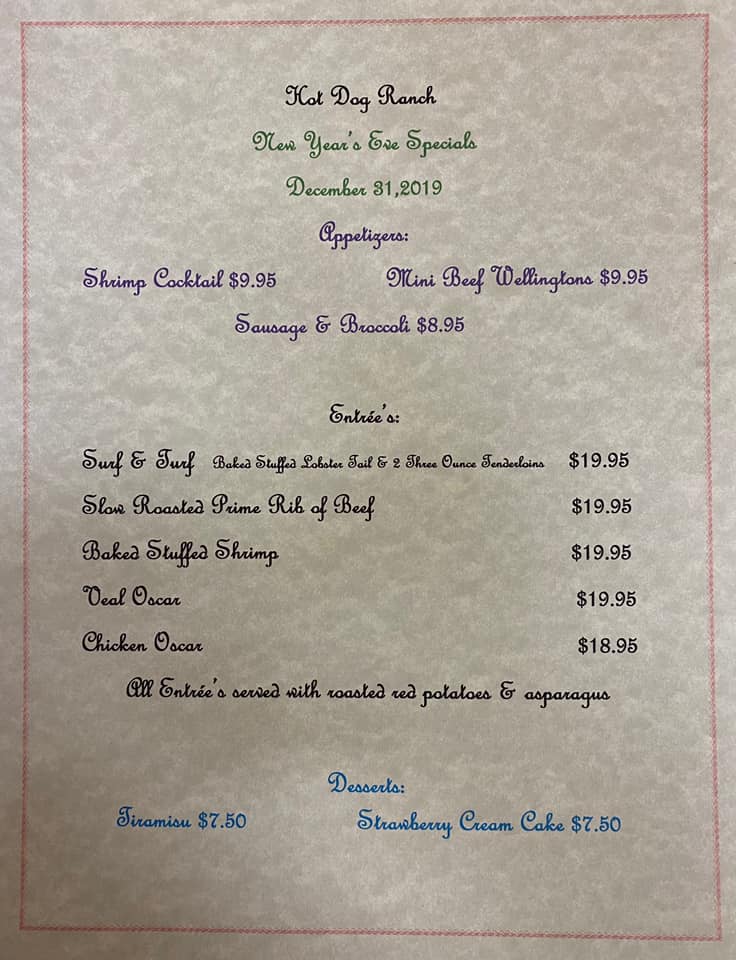 Hot Dog Ranch
New Year's Eve Specials
December 31,2019
Appetizers:
Shrimp Cocktail $9.95 Mini Beef Wellingtons $9.95
Sausage & Broccoli $8.95
Entrée's:
Surf & Turf Baked Stuffed Lobster Tail & 2 Three Ounce Tenderloins $19.95
Slow Roasted Prime Rib of Beef $19.95
Baked Stuffed Shrimp $19.95
Veal Oscar $19.95
Chicken Oscar $18.95
All Entrée's served with roasted red potatoes & asparagus
Desserts:
Tiramisu $7.50 Strawberry Cream Cake $7.50